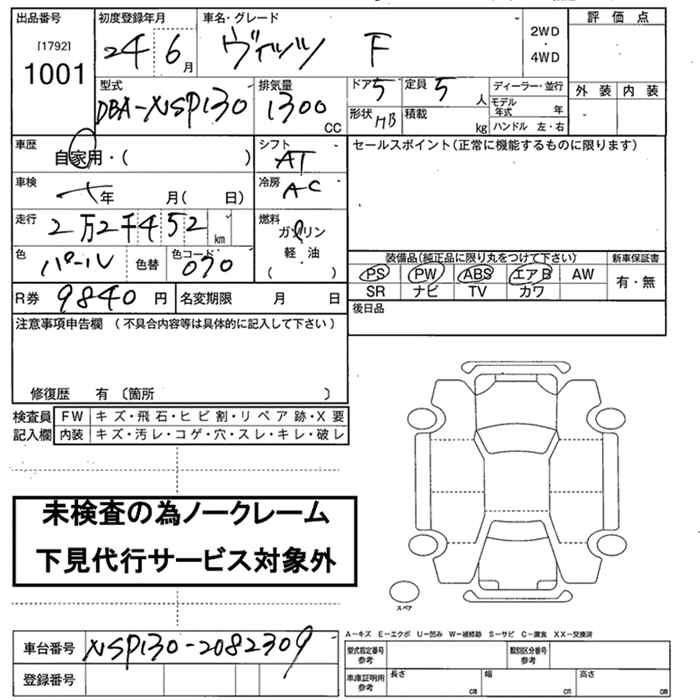 出品番号 初度登録年月 車名・グレード 評価点
[1792] 24 6月 ヴィッツ F 2WD・4WD
1001
型式 排気量 ドア 5 定員 5人 ディーラー・並行 外装 内装
DBA-NSP130 1300 CC 形状 HB 積載 kg モデル年式 年
ハンドル 左・右
車歴 自家用・( ) シフト AT セールスポイント(正常に機能するものに限ります)
車検 年 月( 日) 冷房 AC
走行 2万2千452 km 燃料 ガソリン・軽油( )
色 パール 色替 色コード 070 装備品(純正品に限り丸をつけて下さい) 新車保証書
PS PW ABS エアB AW 有・無
R券 9840円 名変期限 月 日 SR ナビ TV カワ
注意事項申告欄 (不具合内容等は具体的に記入して下さい) 後日品
修復歴 有 〔箇所 〕
検査員 FW キズ・飛石・ヒビ割・リペア跡・X要
記入欄 内装 キズ・汚レ・コゲ・穴・スレ・キレ・破レ
未検査の為ノークレーム
下見代行サービス対象外
スペア
A-キズ E-エクボ U-凹み W-補修跡 S-サビ C-腐食 XX-交換済
車台番号 NSP130-2082309 型式指定番号 参考 類別区分番号 参考
登録番号 車庫証明用 参考 長さ cm 幅 cm 高さ cm